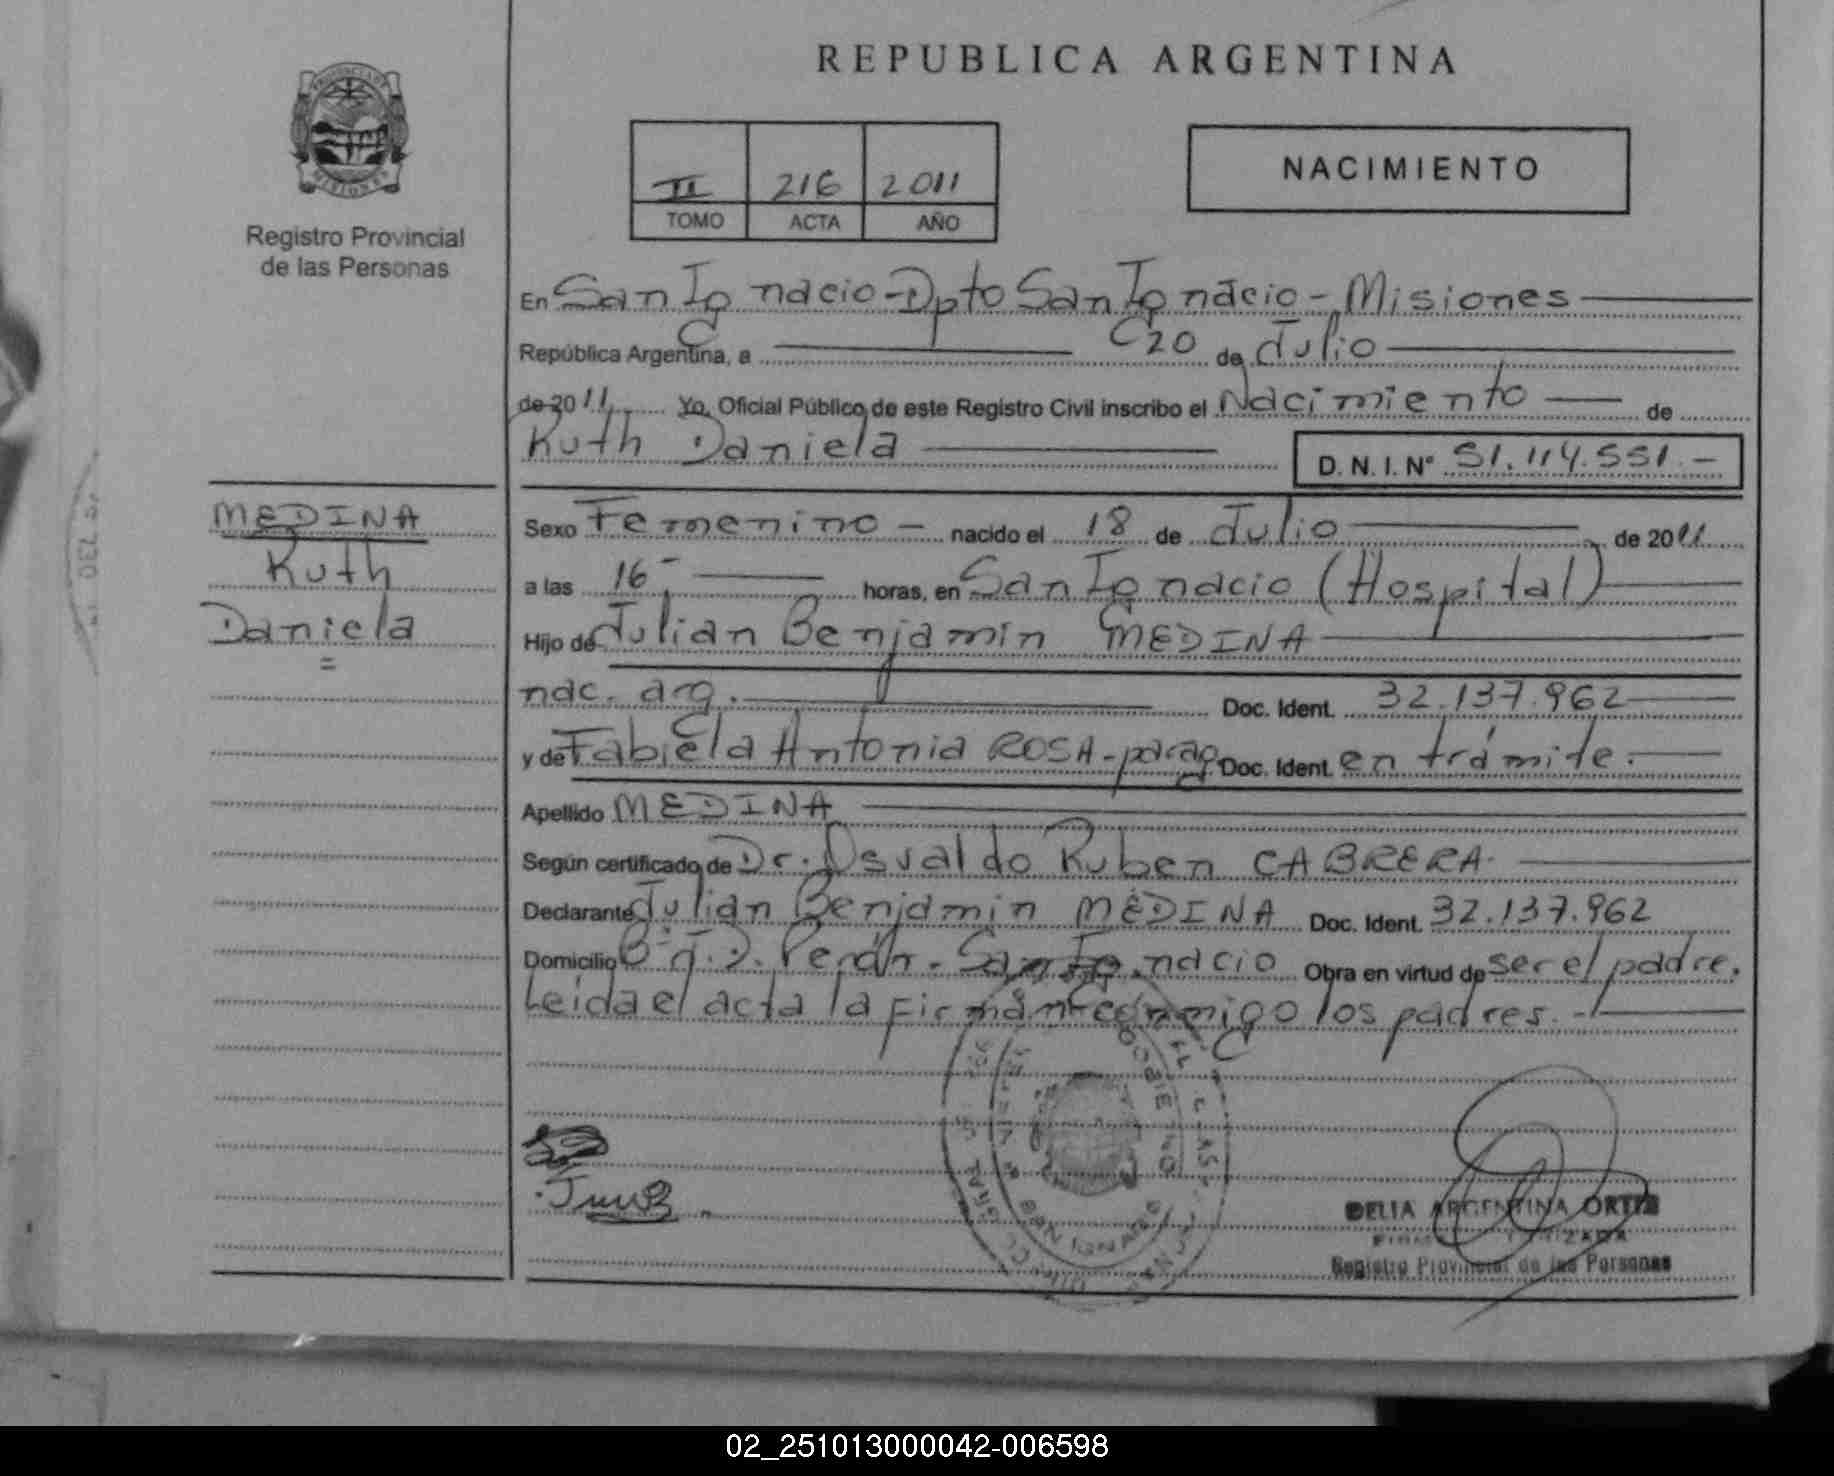 REPUBLICA ARGENTINA
PROVINCIA DE MISIONES
Registro Provincial
de las Personas
II 216 2011
TOMO ACTA AÑO
NACIMIENTO
En San Ignacio-Dpto San Ignacio - Misiones
República Argentina, a 20 de Julio
de 2011 Yo, Oficial Público de este Registro Civil inscribo el Nacimiento de
Ruth Daniela D. N. I. Nº 51.114.551.-
MEDINA
Ruth
Daniela
=
Sexo Femenino - nacido el 18 de Julio de 2011
a las 16- horas, en San Ignacio (Hospital)
Hijo de Julian Benjamin MEDINA
nac. arg. Doc. Ident. 32.137.962
y de Fabiela Antonia ROSA-parag. Doc. Ident. en trámite.
Apellido MEDINA
Según certificado de Dr. Osvaldo Ruben CABRERA
Declarante Julian Benjamin MEDINA Doc. Ident. 32.137.962
Domicilio Bº J.D. Perón. San Ignacio Obra en virtud de ser el padre.
Leida el acta la firman conmigo los padres.-
DELIA ARGENTINA ORTIZ
Registro Provincial de las Personas
02_251013000042-006598